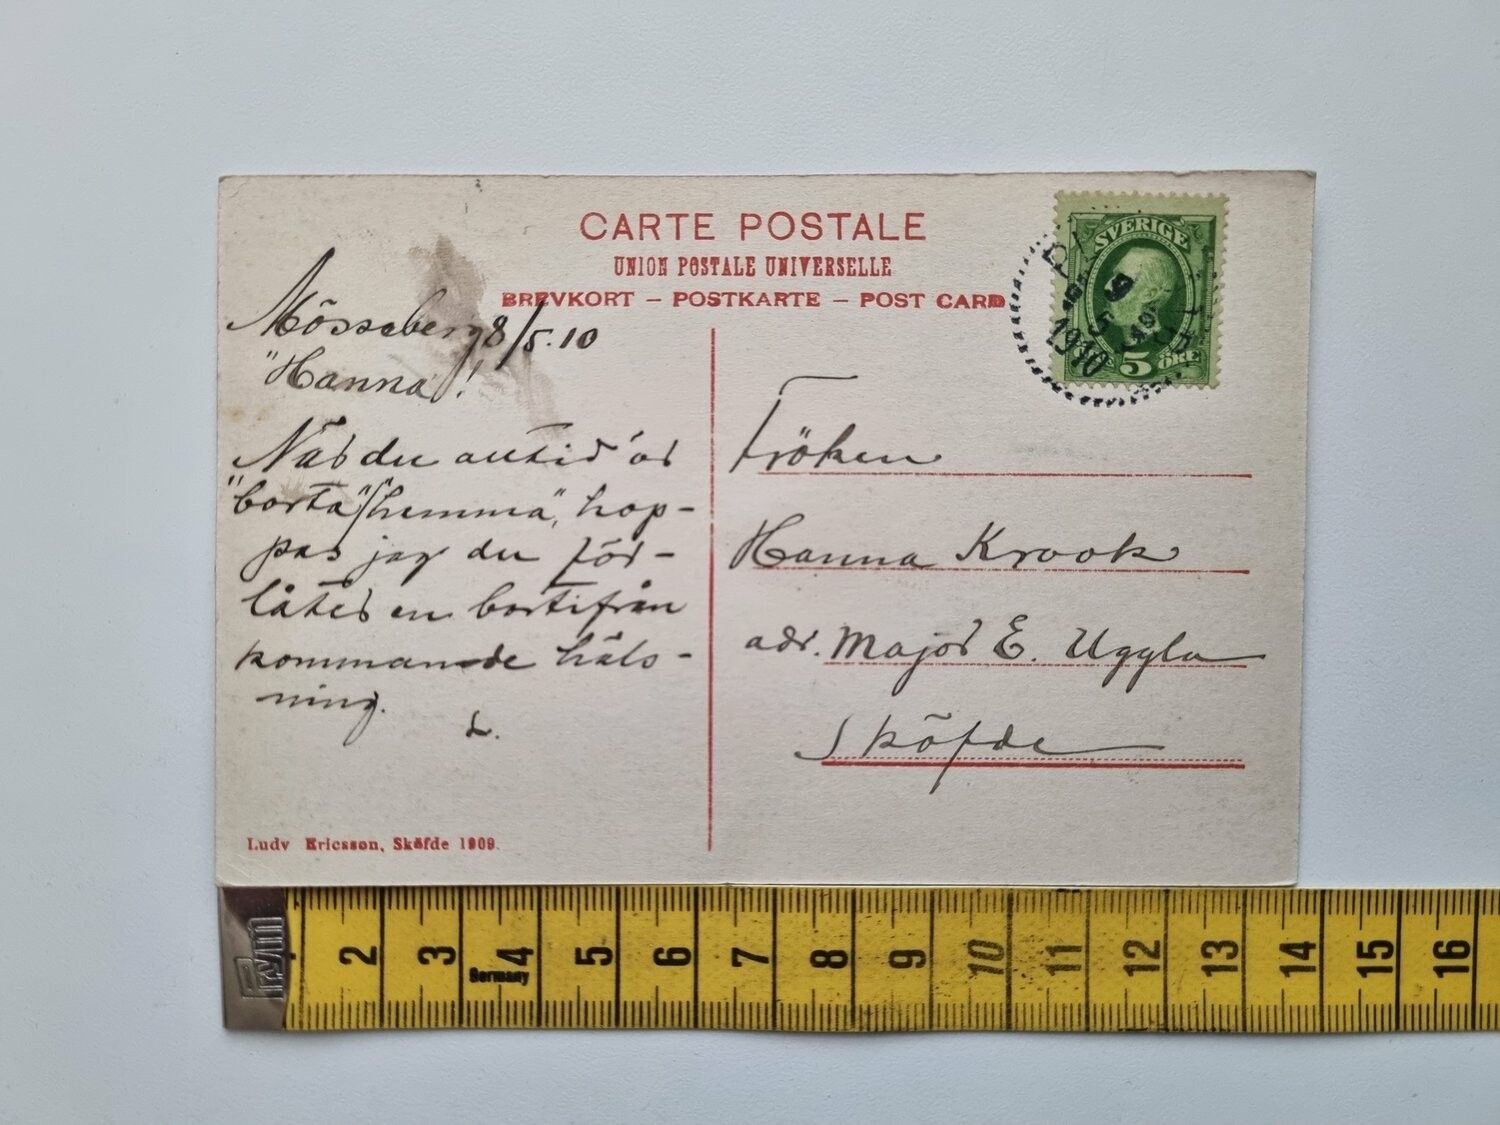 CARTE POSTALE
UNION POSTALE UNIVERSELLE
BREVKORT – POSTKARTE – POST CARD
SVERIGE
5 ÖRE
9
5
1910
Mösseberg 8/5.10
"Hanna"!
När du alltid är
"borta"/"hemma", hop-
pas jag du för-
låter en bortifrån
kommande häls-
ning.
L.
Fröken
Hanna Krook
adr. Major E. Uggla
Sköfde
Ludv Ericsson, Sköfde 1909.
Prym
2 3 4 5 6 7 8 9 10 11 12 13 14 15 16
Germany